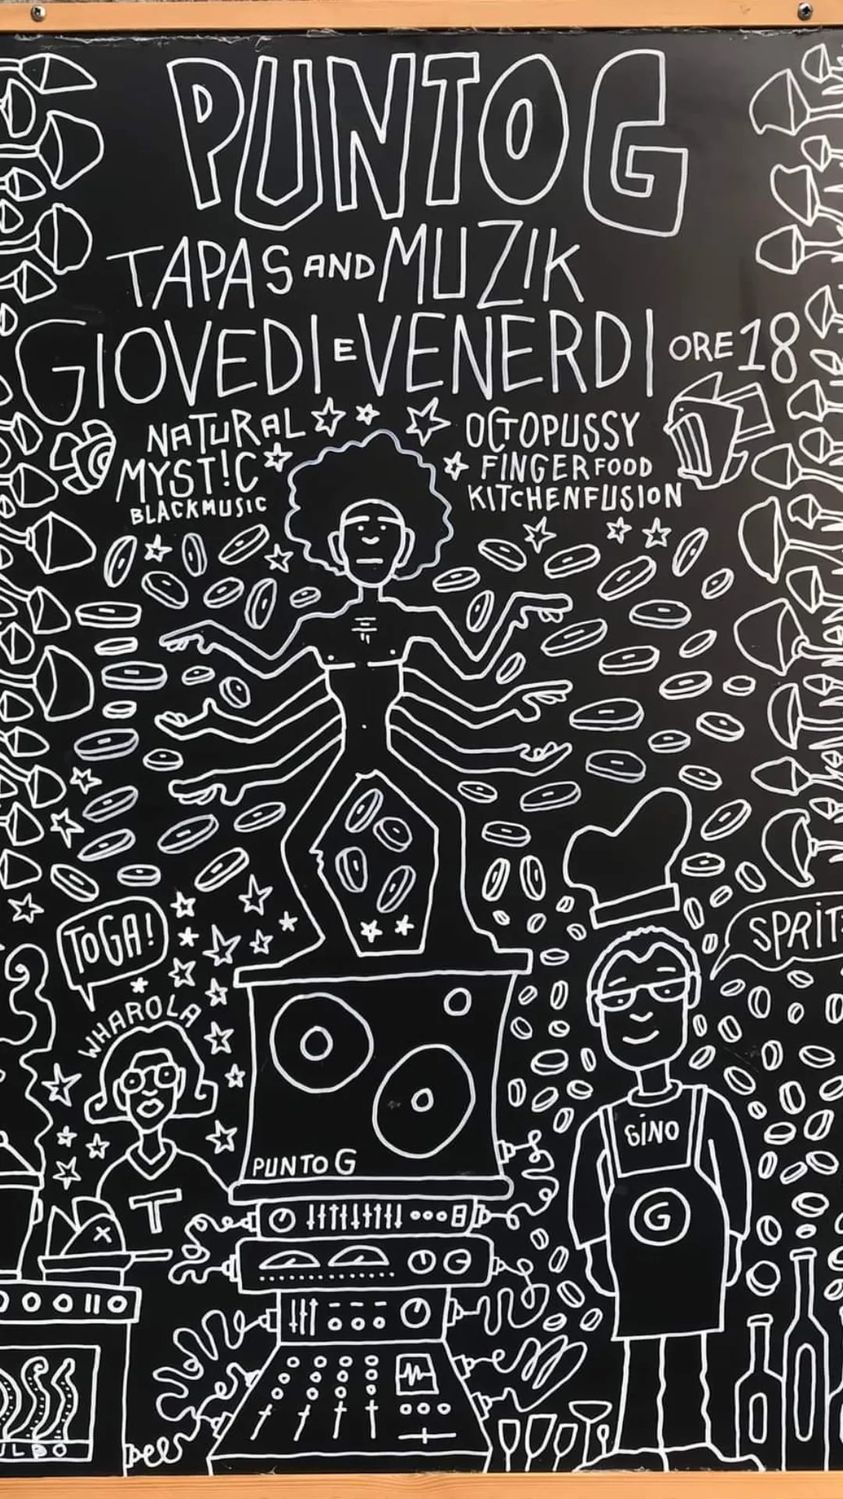 PUNTO G
TAPAS AND MUZIK
GIOVEDI E VENERDI ORE 18
NATURAL
MYST!C
BLACKMUSIC
OCTOPUSSY
FINGERFOOD
KITCHENFUSION
TOGA!
WHAROLA
T
SPRIT
GINO
G
PUNTO G